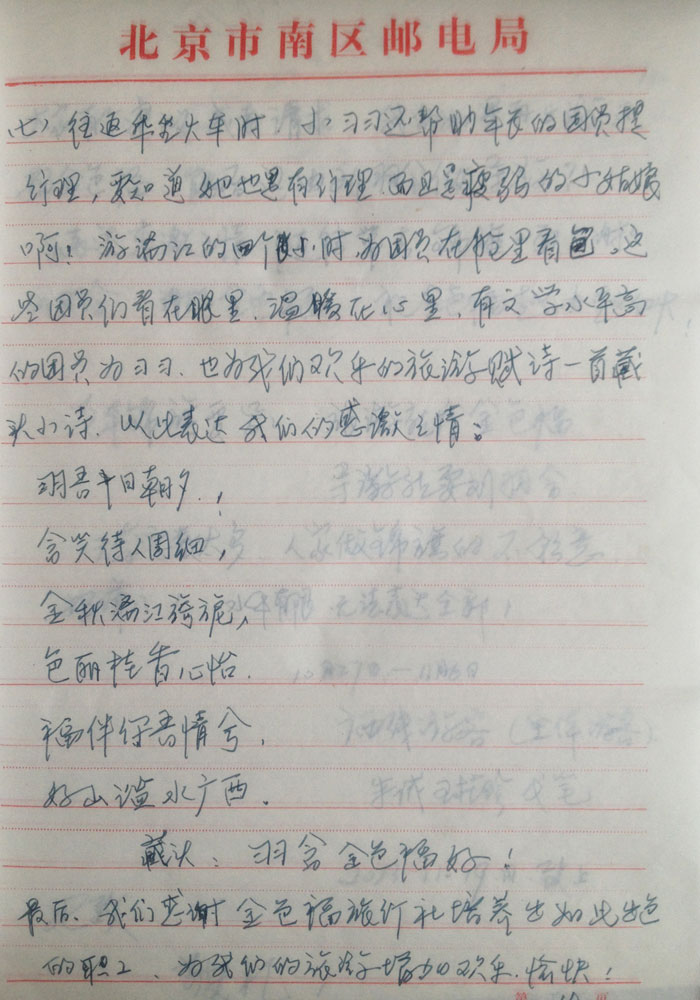 北京市南区邮电局
七）往返乘坐火车时 小习习还帮助年长的团员提
行理，要知道她也是有行理，而且是瘦弱的小姑娘
啊！游漓江的四个小时，为团员在舱里看包。这
些团员们看在眼里，温暖在心里，有文学水平高
的团员为习习、也为我们欢乐的旅游赋诗一首藏
头小诗，以此表达我们的感激之情：
羽吾十日朝夕！
含笑待人周细，
金秋漓江旖旎，
色丽桂香心怡．
福伴你吾情兮，
好山溢水广西．
藏头：羽含金色福好！
最后，我们感谢金色福旅行社培养出如此出色
的职工，为我们的旅游增加欢乐．愉快！